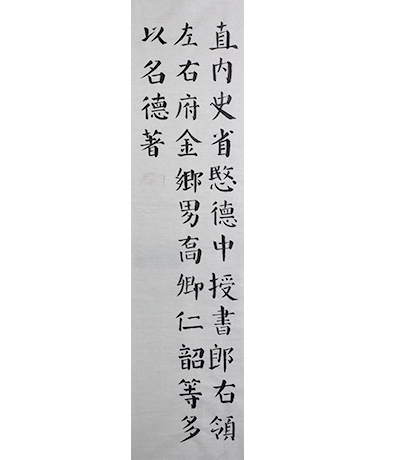 直内史省愍德中授書郎右領
左右府金鄉男高卿仁韶等多
以名德著